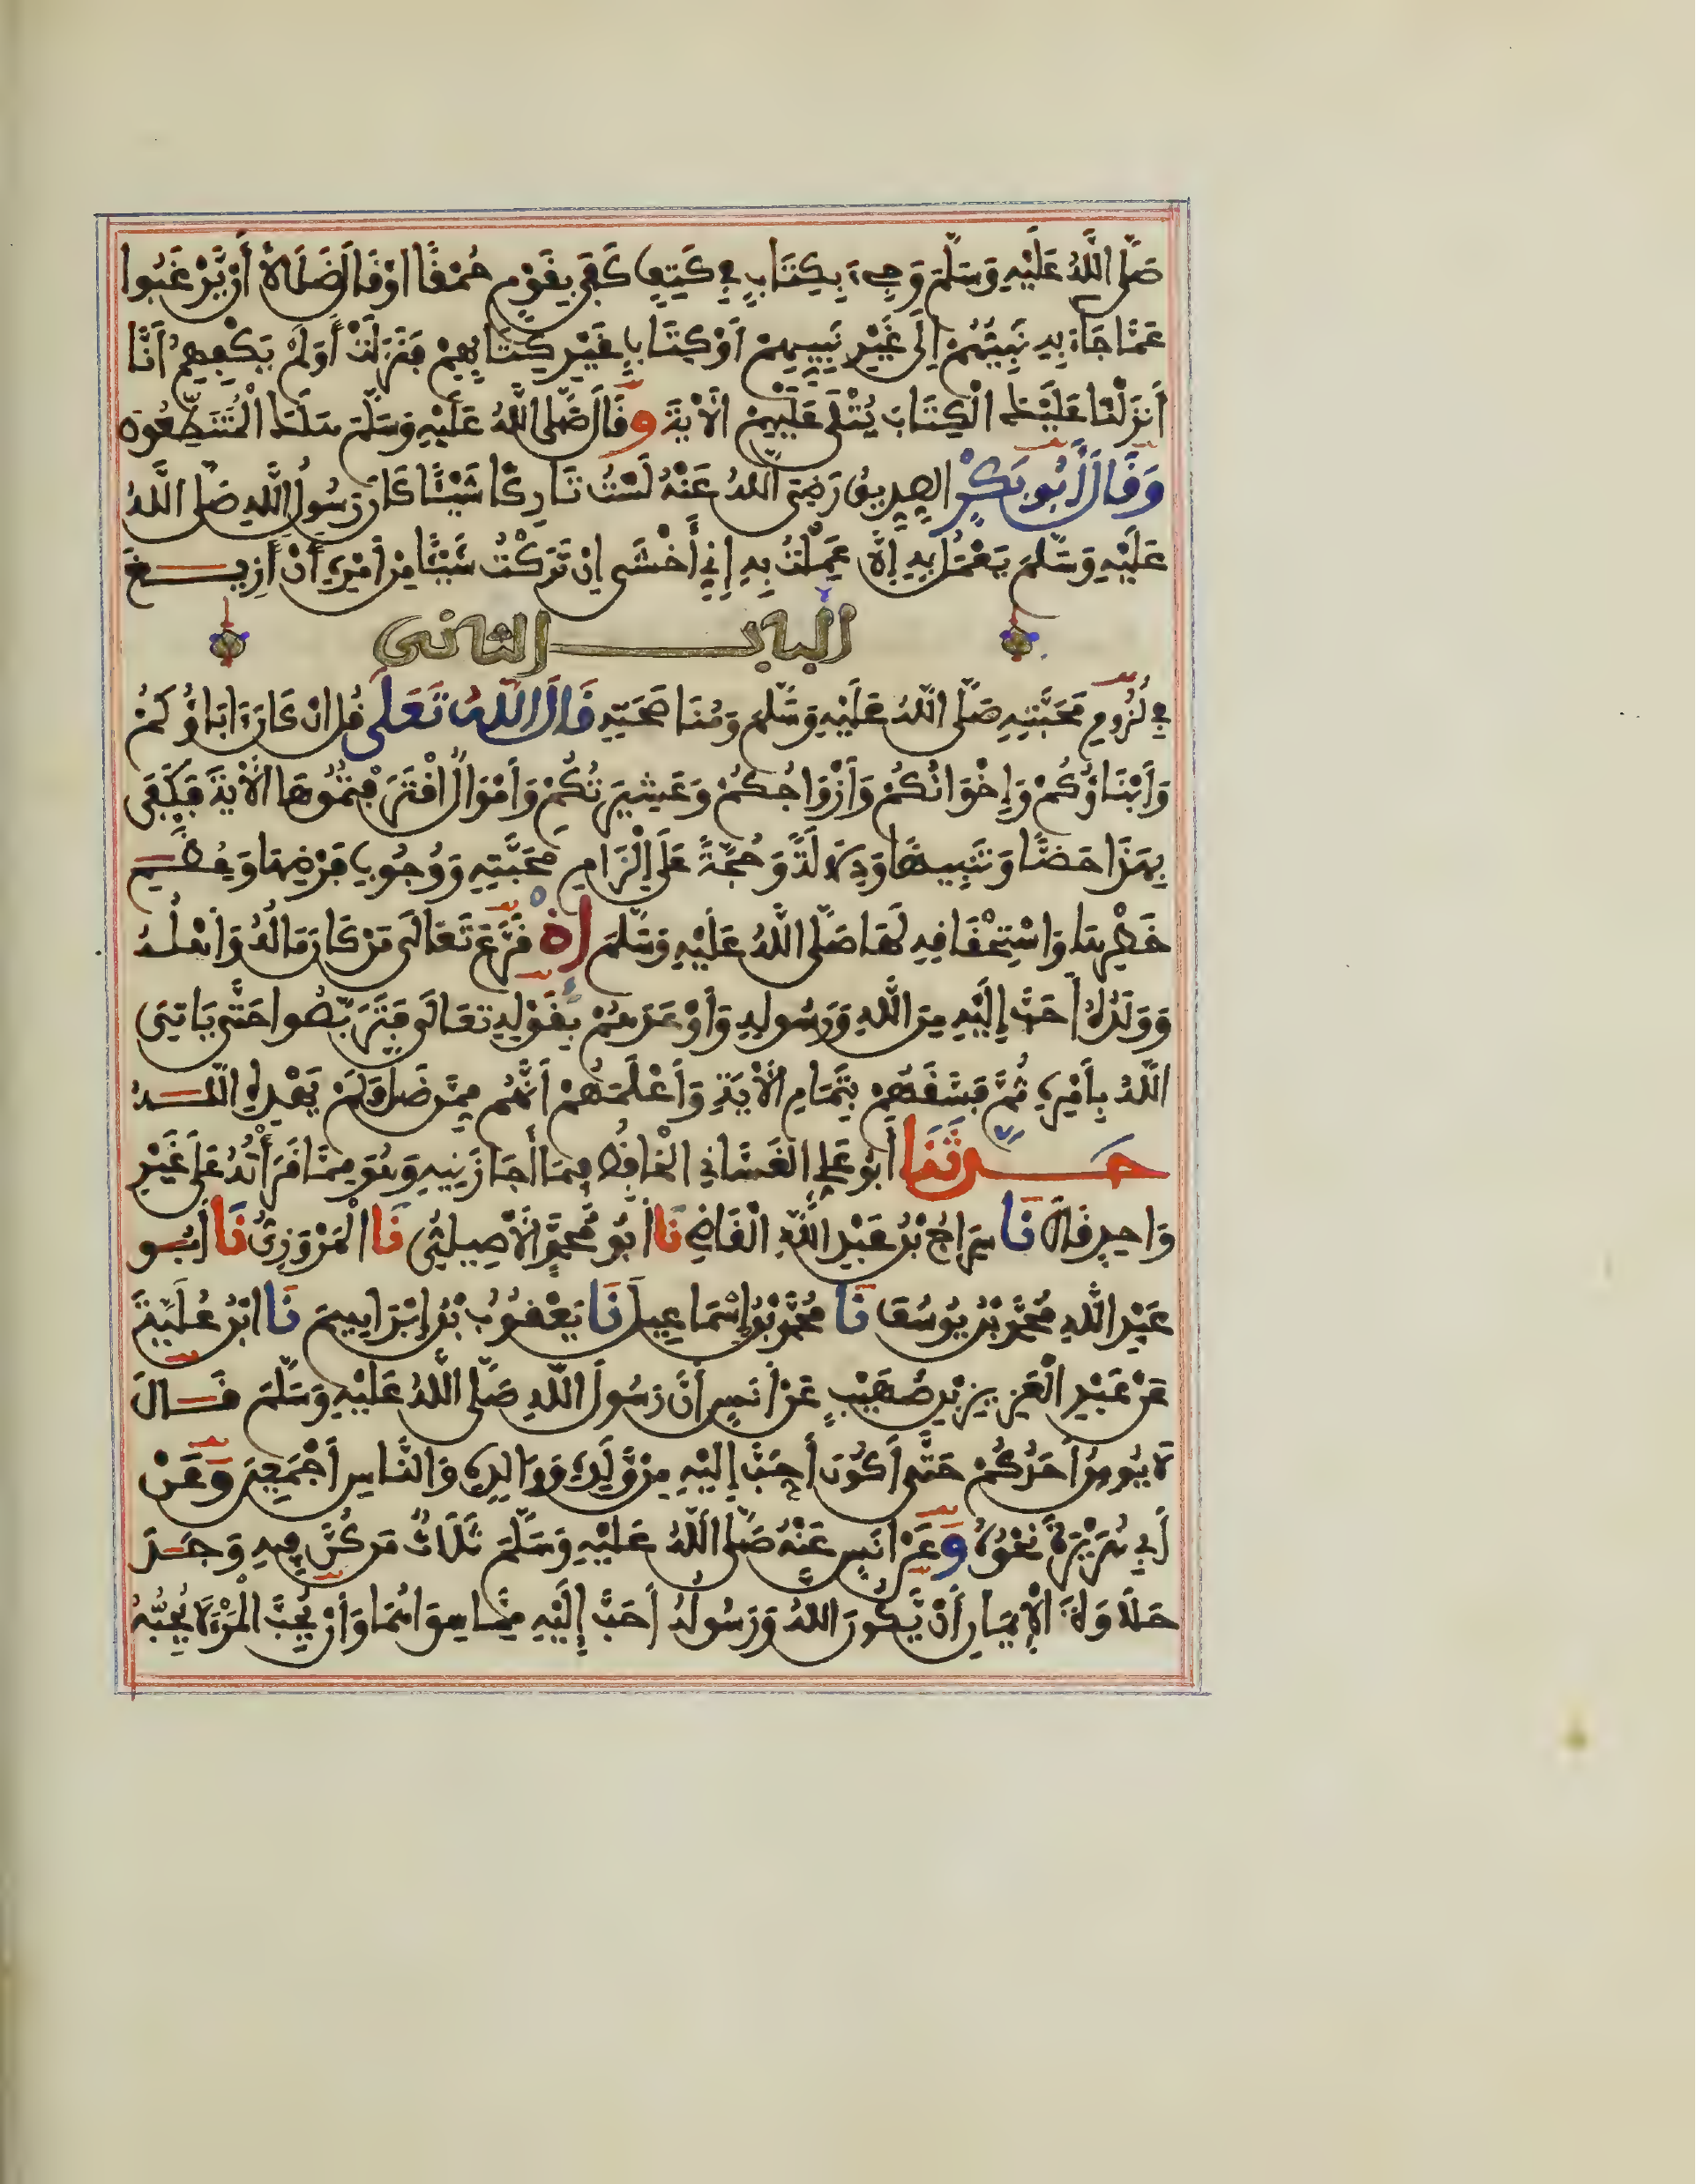 صَلَّى اللَّهُ عَلَيْهِ وَسَلَّمَ وَجِيءَ بِكِتَابٍ فِي كَتِفٍ كَفَى بِقَوْمٍ حُمْقًا اوْ قَالَ ضَلَالًا أَنْ يَّرْغَبُوا
عَمَّا جَاءَ بِهِ نَبِيُّهُمْ إِلَى غَيْرِ نَبِيِّهِمْ أَوْ كِتَابٍ غَيْرِ كِتَابِهِمْ فَنَزَلَتْ أَوَلَمْ يَكْفِهِمُ أَنَّا
أَنزَلْنَا عَلَيْكَ الْكِتَابَ يُتْلَى عَلَيْهِمْ الْآيَةَ وَقَالَ صَلَّى اللَّهُ عَلَيْهِ وَسَلَّمَ هَلَكَ الْمُتَنَطِّعُونَ
وَقَالَ أَبُو بَكْرٍ الصِّدِّيقُ رَضِيَ اللَّهُ عَنْهُ لَسْتُ تَارِكًا شَيْئًا كَانَ رَسُولُ اللَّهِ صَلَّى اللَّهُ
عَلَيْهِ وَسَلَّمَ يَعْمَلُ بِهِ إِلَّا عَمِلْتُ بِهِ إِنِّي أَخْشَى إِنْ تَرَكْتُ شَيْئًا مِنْ أَمْرِهِ أَنْ أَزِيغَ
الباب الثاني
فِي لُزُومِ مَحَبَّتِهِ صَلَّى اللَّهُ عَلَيْهِ وَسَلَّمَ وَمُنَاصَحَتِهِ قَالَ اللَّهُ تَعَلَى قُلِ انْ كَانَ ءَابَاؤُكُمْ
وَأَبْنَاؤُكُمْ وَإِخْوَانُكُمْ وَأَزْوَاجُكُمْ وَعَشِيرَتُكُمْ وَأَمْوَالٌ اقْتَرَفْتُمُوهَا الْآيَةَ فَكَفَى
بِهَذَا حَضًّا وَتَنْبِيهًا وَدِلَالَةً وَحُجَّةً عَلَى إِلْزَامِ مَحَبَّتِهِ وَوُجُوبِ فَرْضِهَا وَعِظَمِ
خَطَرِهَا وَاسْتِحْقَاقِهِ لَهَا صَلَّى اللَّهُ عَلَيْهِ وَسَلَّمَ إِذْ قَرَّعَ تَعَالَى مَنْ كَانَ مَالُهُ وَأَهْلُهُ
وَوَلَدُهُ أَحَبَّ إِلَيْهِ مِنَ اللَّهِ وَرَسُولِهِ وَأَوْعَدَهُمْ بِقَوْلِهِ تَعَالَى فَتَرَبَّصُوا حَتَّى يَاتِيَ
اللَّهُ بِأَمْرِهِ ثُمَّ فَسَّقَهُمْ بِتَمَامِ الْآيَةِ وَأَعْلَمَهُمْ أَنَّهُمْ مِمَّن ضَلَّ وَلَمْ يَهْدِهِ اللَّهُ
حَدَّثَنَا أَبُو عَلِيٍّ الْغَسَّانِيُّ الْحَافِظُ فِيمَا أَجَازَنِيهِ وَهُوَ مِمَّا قَرَأْتُهُ عَلَى غَيْرِ
وَاحِدٍ قَالَ نَا سِرَاجُ بْنُ عَبْدِ اللَّهِ الْقَاضِي نَا أَبُو مُحَمَّدٍ الْأَصِيلِيُّ نَا الْمَرْوَزِيُّ نَا أَبُو
عَبْدِ اللَّهِ مُحَمَّدُ بْنُ يُوسُفَ نَا مُحَمَّدُ بْنُ إِسْمَاعِيلَ نَا يَعْقُوبُ بْنُ إِبْرَاهِيمَ نَا ابْنُ عُلَيَّةَ
عَنْ عَبْدِ الْعَزِيزِ بْنِ صُهَيْبٍ عَنْ أَنَسٍ أَنَّ رَسُولَ اللَّهِ صَلَّى اللَّهُ عَلَيْهِ وَسَلَّمَ قَالَ
لَا يُومِنُ أَحَدُكُمْ حَتَّى أَكُونَ أَحَبَّ إِلَيْهِ مِنْ وَّلَدِهِ وَوَالِدِهِ وَالنَّاسِ أَجْمَعِينَ وَعَنْ
أَبِي هُرَيْرَةَ نَحْوُهُ وَعَنْ أَنَسٍ عَنْهُ صَلَّى اللَّهُ عَلَيْهِ وَسَلَّمَ ثَلَاثٌ مَن كُنَّ فِيهِ وَجَدَ
حَلَاوَةَ الْإِيمَانِ أَنْ يَّكُونَ اللَّهُ وَرَسُولُهُ أَحَبَّ إِلَيْهِ مِمَّا سِوَاهُمَا وَأَنْ يُّحِبَّ الْمَرْءَ لَا يُحِبُّهُ